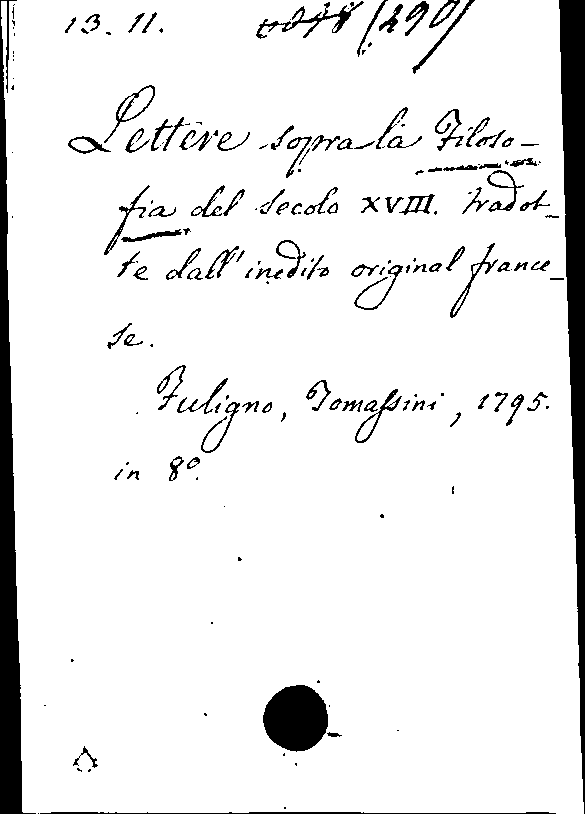 13. 11. (290)
Lettere sopra la Filoso-
fia del secolo XVIII. tradot-
te dall' inedito original france-
se.
Fuligno, Tomassini, 1795.
in 8º.